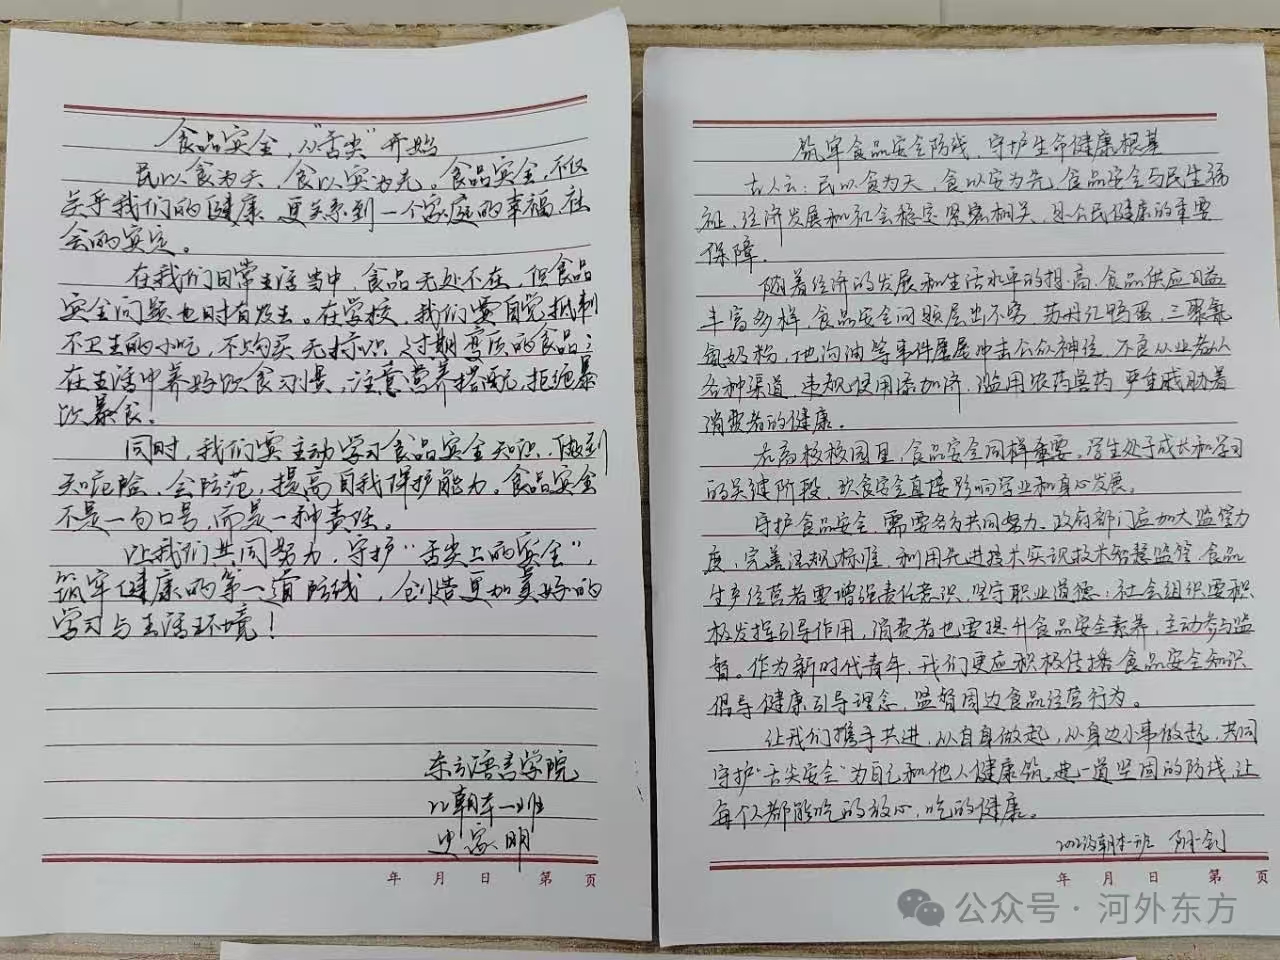 食品安全，从“舌尖”开始
民以食为天，食以安为先。食品安全，不仅
关乎我们的健康，更关系到一个家庭的幸福，社
会的安定。
在我们日常生活当中，食品无处不在，但食品
安全问题也时有发生。在学校，我们要自觉抵制
不卫生的小吃，不购买无标识、过期变质的食品；
在生活中养好饮食习惯，注意营养搭配，拒绝暴
饮暴食！
同时，我们要主动学习食品安全知识，做到
知危险，会防范，提高自我保护能力。食品安全
不是一句口号，而是一种责任。
让我们共同努力，守护“舌尖上的安全”，
筑牢健康的第一道防线，创造更加美好的
学习与生活环境！
东方语言学院
22朝本一班
史家明
年 月 日 第 页
筑牢食品安全防线，守护生命健康根基
古人云：民以食为天，食以安为先，食品安全与民生福
祉、经济发展和社会稳定紧密相关，是公民健康的重要
保障。
随着经济的发展和生活水平的提高，食品供应日益
丰富多样，食品安全问题层出不穷，苏丹红鸭蛋，三聚氰
氨奶粉，地沟油等事件屡屡冲击公众神经，不良从业者从
各种渠道，违规使用添加济，滥用农药兽药，严重威胁着
消费者的健康。
在高校校园里，食品安全同样重要，学生处于成长和学习
的关键阶段，饮食安全直接影响学业和身心发展。
守护食品安全，需要各方共同努力、政府部门应加大监管力
度，完善法规标准，利用先进技术实现技术智慧监管，食品
生产经营者要增强责任意识，坚守职业道德；社会组织要积
极发挥引导作用，消费者也要提升食品安全素养，主动参与监
督。作为新时代青年，我们更应积极传播食品安全知识
倡导健康引导理念，监督周边食品经营行为。
让我们携手共进，从自身做起，从身边小事做起，共同
守护“舌尖安全”为自己和他人健康筑建一道坚固的防线，让
每个人都能吃的放心，吃的健康。
2022级朝本一班
年 月 日 第 页
公众号·河外东方